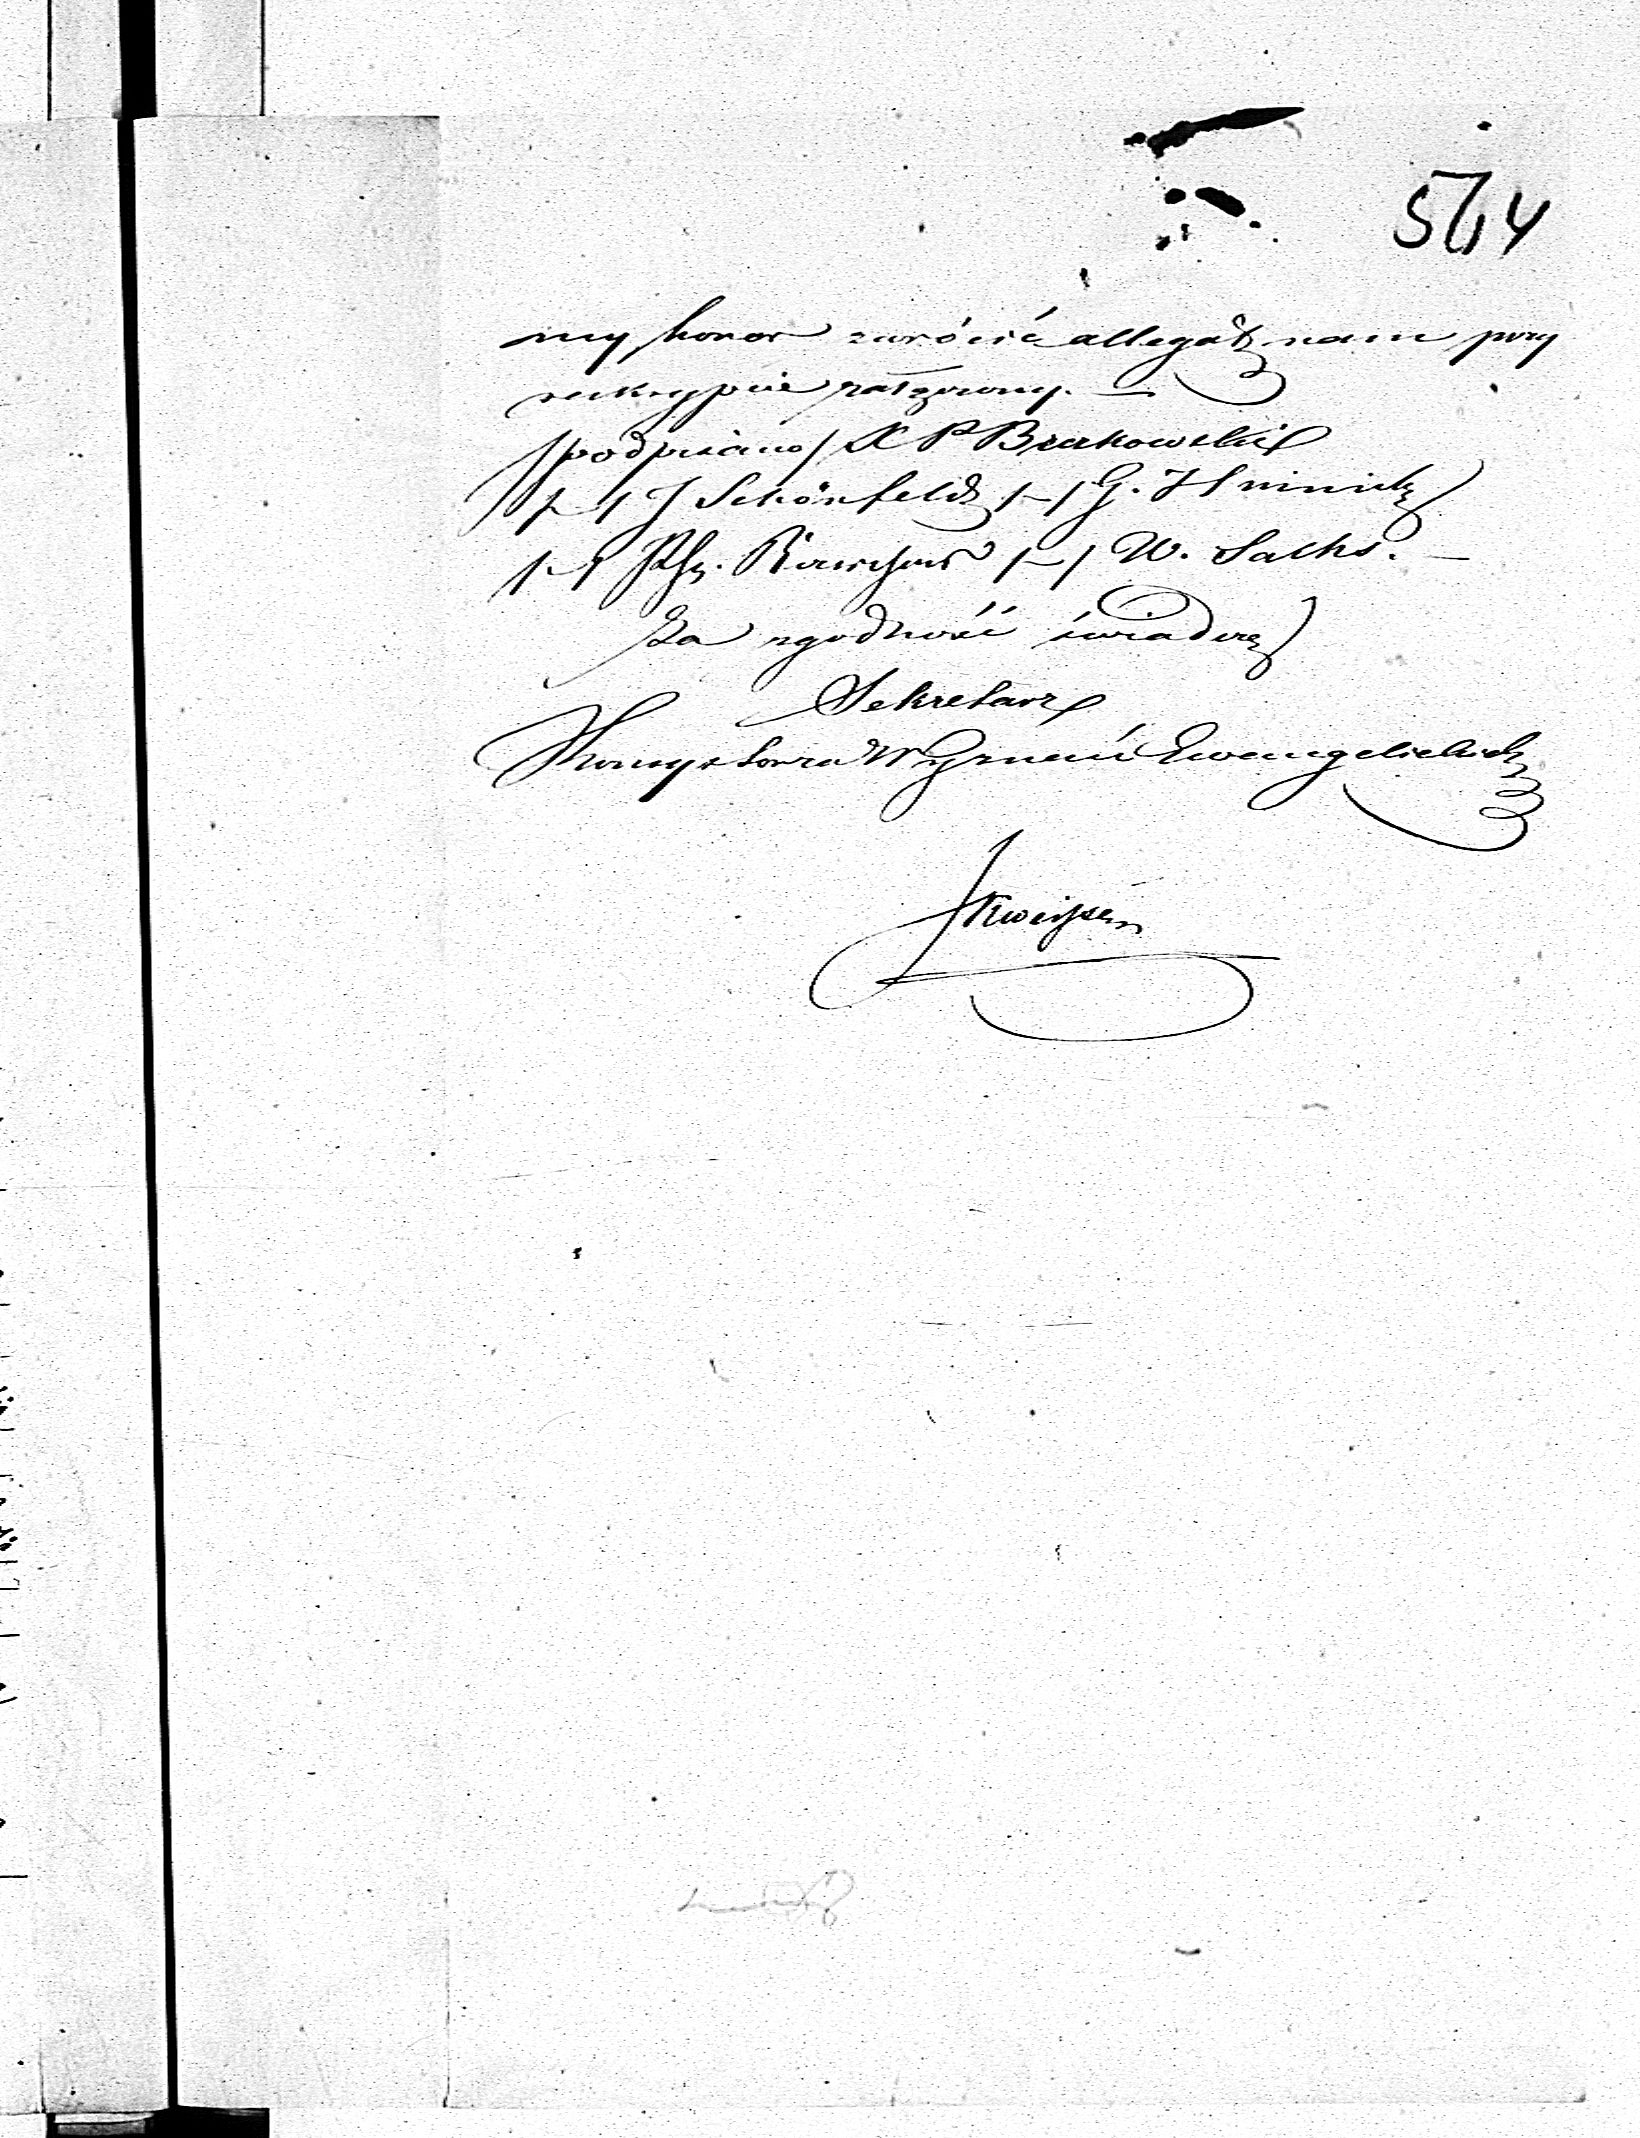 564
my honor zwrócić allegat nam przy
reskrypcie załączony. —
/podpisano/ X P Brukowski
/–/ J Schönfeld /–/ G.
/–/ /–/ W. Sachs. —
Za zgodność świadczę
Sekretarz
Konsystorza Wyznań Ewangelickich